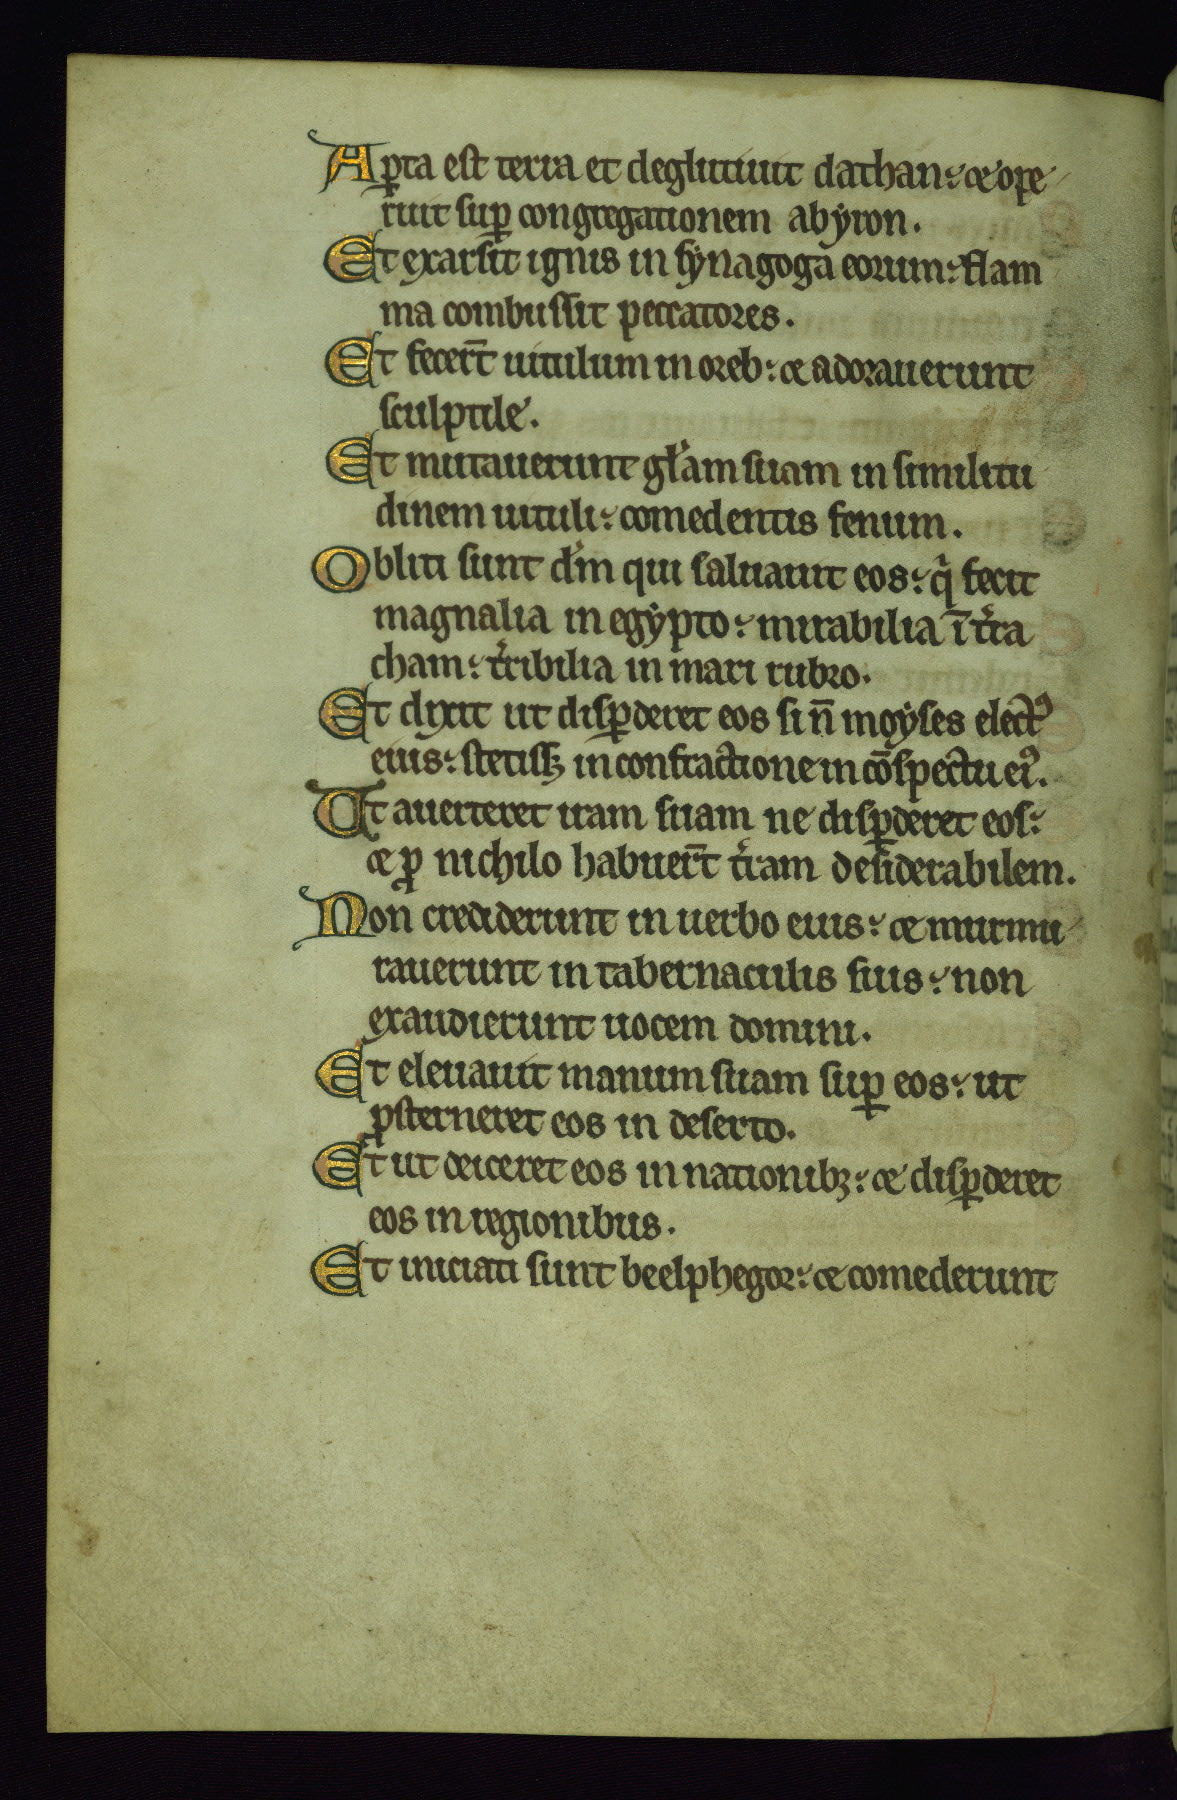 Aꝑta est terra et deglutiuit dathan: et ope
ruit suꝑ congregationem abyron.
Et exarsit ignis in synagoga eorum: flam
ma combussit peccatores.
Et fecert̄ uitulum in oreb: et adorauerunt
sculptile.
Et mutauerunt gl'am suam in similitu
dinem uituli: comedentis fenum.
Obliti sunt d'm qui saluauit eos: qͥ fecit
magnalia in egypto: mirabilia ī t'ra
cham: t'ribilia in mari rubro.
Et dixit ut disꝑderet eos si n̄ moyses electꝰ
eius: stetissꝫ in confractione in cōspectu eiꝰ.
Ut auerteret iram suam ne disꝑderet eos:
et ꝓ nichilo habuert̄ t'ram desiderabilem.
Non crediderunt in uerbo eius: et murmu
rauerunt in tabernaculis suis: non
exaudierunt uocem domini.
Et eleuauit manum suam suꝑ eos: ut
ꝓsterneret eos in deserto.
Et ut deiceret eos in nationibꝫ: et disꝑderet
eos in regionibus.
Et iniciati sunt beelphegor: et comederunt